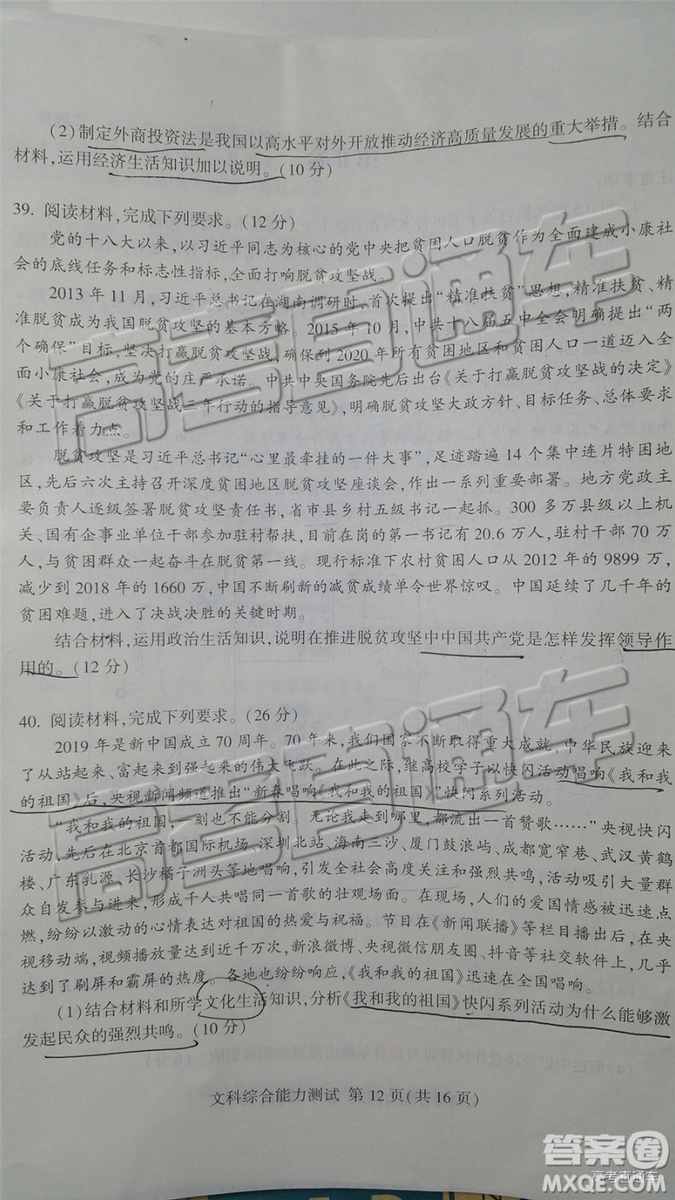 (2)制定外商投资法是我国以高水平对外开放推动经济高质量发展的重大举措。结合
材料,运用经济生活知识加以说明。(10分)
39. 阅读材料,完成下列要求。(12分)
党的十八大以来,以习近平同志为核心的党中央把贫困人口脱贫作为全面建成小康社
会的底线任务和标志性指标,全面打响脱贫攻坚战。
2013年11月,习近平总书记在湖南调研时,首次提出“精准扶贫”思想,精准扶贫、精
准脱贫成为我国脱贫攻坚的基本方略。2015年10月,中共十八届五中全会明确提出“两
个确保”目标,坚决打赢脱贫攻坚战,确保到2020年所有贫困地区和贫困人口一道迈入全
面小康社会,成为党的庄严承诺。中共中央国务院先后出台《关于打赢脱贫攻坚战的决定》
《关于打赢脱贫攻坚战三年行动的指导意见》,明确脱贫攻坚大政方针、目标任务、总体要求
和工作着力点。
脱贫攻坚是习近平总书记“心里最牵挂的一件大事”,足迹踏遍14个集中连片特困地
区,先后六次主持召开深度贫困地区脱贫攻坚座谈会,作出一系列重要部署。地方党政主
要负责人逐级签署脱贫攻坚责任书,省市县乡村五级书记一起抓。300多万县级以上机
关、国有企事业单位干部参加驻村帮扶,目前在岗的第一书记有20.6万人,驻村干部70万
人,与贫困群众一起奋斗在脱贫第一线。现行标准下农村贫困人口从2012年的9899万,
减少到2018年的1660万,中国不断刷新的减贫成绩单令世界惊叹。中国延续了几千年的
贫困难题,进入了决战决胜的关键时期。
结合材料,运用政治生活知识,说明在推进脱贫攻坚中中国共产党是怎样发挥领导作
用的。(12分)
40. 阅读材料,完成下列要求。(26分)
2019年是新中国成立70周年。70年来,我们国家不断取得重大成就,中华民族迎来
了从站起来、富起来到强起来的伟大飞跃。在此之际,继高校学子以快闪活动唱响《我和我
的祖国》后,央视新闻频道推出“新春唱响《我和我的祖国》”快闪系列活动。
“我和我的祖国,一刻也不能分割,无论我走到哪里,都流出一首赞歌……”央视快闪
活动,先后在北京首都国际机场、深圳北站、海南三沙、厦门鼓浪屿、成都宽窄巷、武汉黄鹤
楼、广东乳源、长沙橘子洲头等地唱响,引发全社会高度关注和强烈共鸣,活动吸引大量群
众自发参与进来,形成千人共唱同一首歌的壮观场面。人们的爱国情感被迅速点
燃,纷纷以激动的心情表达对祖国的热爱与祝福。节目在《新闻联播》等栏目播出后,
网站点击、视频播放量达到近千万次,新浪微博、央视微信朋友圈、抖音等社交软件上,几乎
达到了刷屏和霸屏的热度。各地也纷纷响应,《我和我的祖国》迅速在全国唱响。
(1)结合材料和所学文化生活知识,分析《我和我的祖国》快闪系列活动为什么能够激
发起民众的强烈共鸣。(10分)
文科综合能力测试 第12页(共16页)
高考直通车
高考直通车
高考直通车
答案圈
MXQE.COM
高考直通车